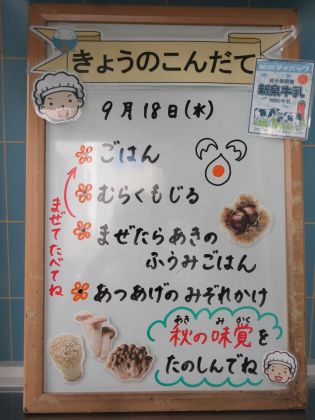 きょうのこんだて
成分無調整
新泉牛乳
9月18日(水)
ごはん
むらくもじる
まぜてたべてね
まぜたらあきの
ふうみごはん
あつあげのみぞれかけ
あき みかく
秋の味覚を
たのしんでね